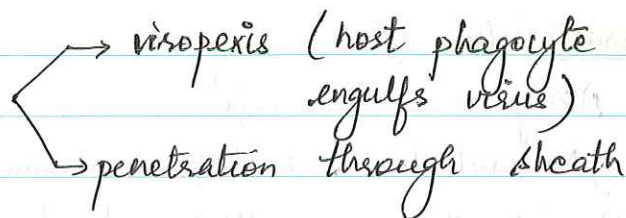 → viropexis (host phagocyte
engulfs virus)
→ penetration through sheath